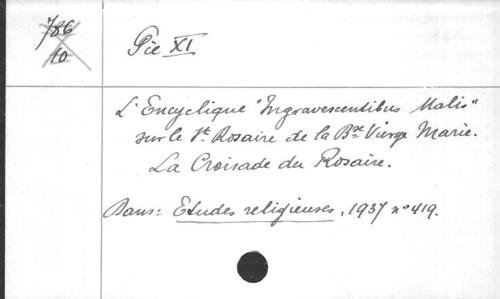 786
10
Pie XI
L'Encyclique "Ingravescentibus Malis"
sur le St. Rosaire de la Bse Vierge Marie.
La Croisade du Rosaire.
Dans: Etudes religieuses, 1937 n° 419.